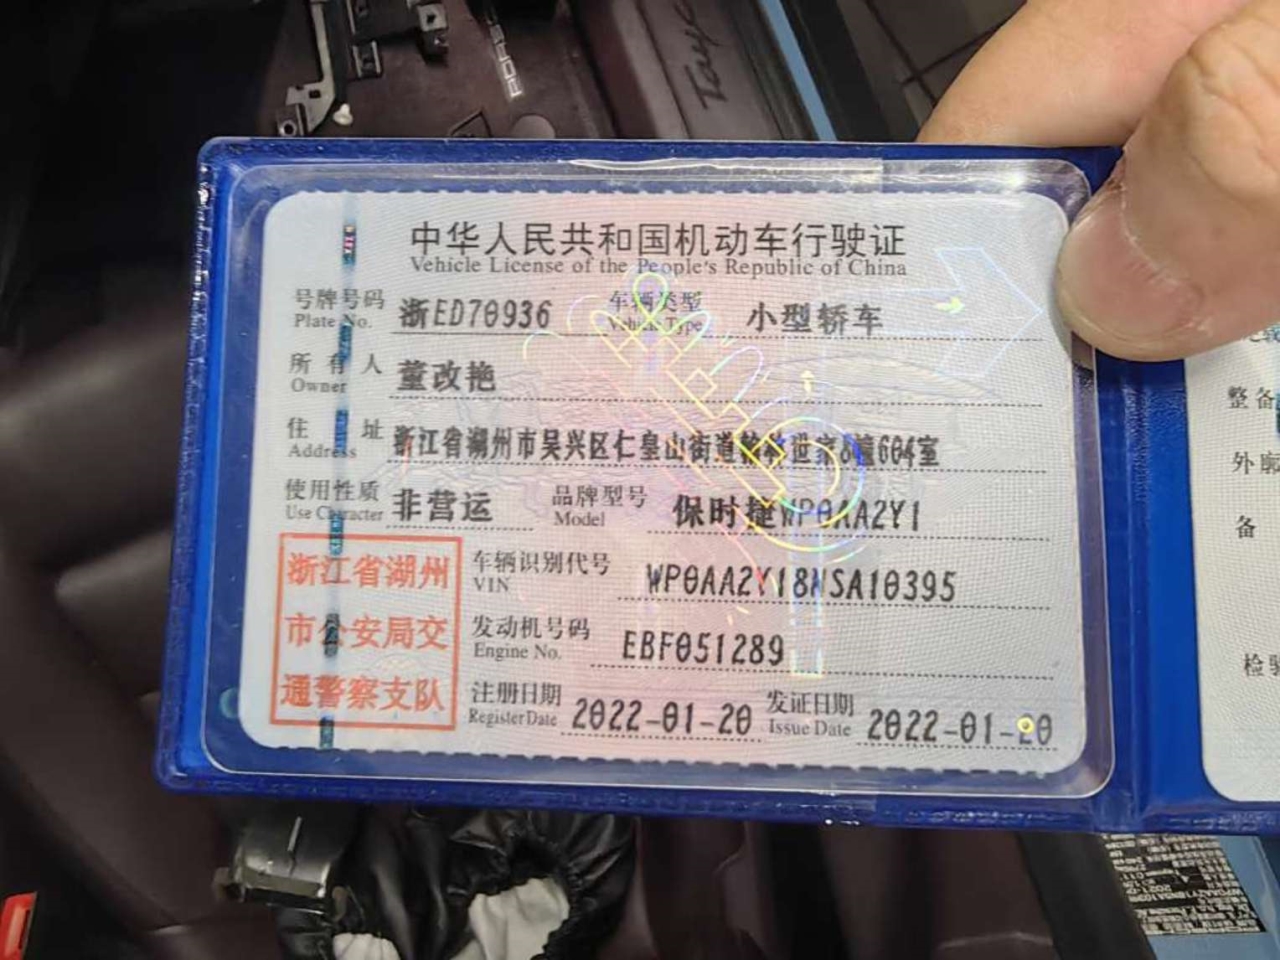 PORSCHE
Tayc
中华人民共和国机动车行驶证
Vehicle License of the People's Republic of China
号牌号码 浙ED70936 车辆类型 小型轿车
Plate No. Vehicle Type
所有人 董改艳
Owner
住址 浙江省湖州市吴兴区仁皇山街道 世家8幢604室
Address
使用性质 非营运 品牌型号 保时捷WP0AA2Y1
Use Character Model
浙江省湖州
市公安局交
通警察支队
车辆识别代号 WP0AA2Y18NSA10395
VIN
发动机号码 EBF051289
Engine No.
注册日期 2022-01-20 发证日期 2022-01-20
Register Date Issue Date
整备
外廓
备
检验